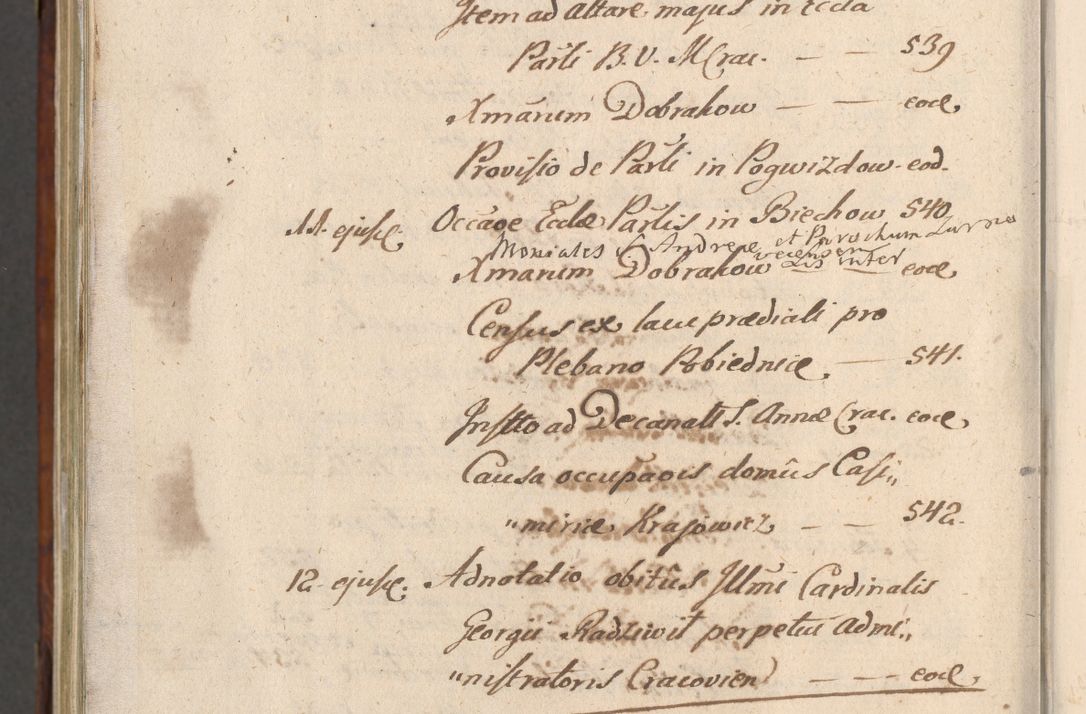 Item ad altare majus in Eccla
Parli B. V. M Crac. — — 539
Xmārum Dobrakow — — eod.
Provisio de Parli in Pogwizdow. eod.
11. ejusd. Occāoe Ecclæ Parlis in Biechow 540
Moniales S. Andreæ et Parochum
vecensen Lis inter
Xmarum Dobrakow — — eod.
Census ex laneo prædiali pro
Plebano Pobiednice. — 541.
Instto ad Decanalt S. Annæ Crac. eod.
Causa occupaois domûs Casi„
„miriæ Krajowicz — — 542.
12. ejusd. Adnotatio obitûs Illmi Cardinalis
Georgii Radziwil perpetui Admi„
„nistratoris Cracovien — — eod.